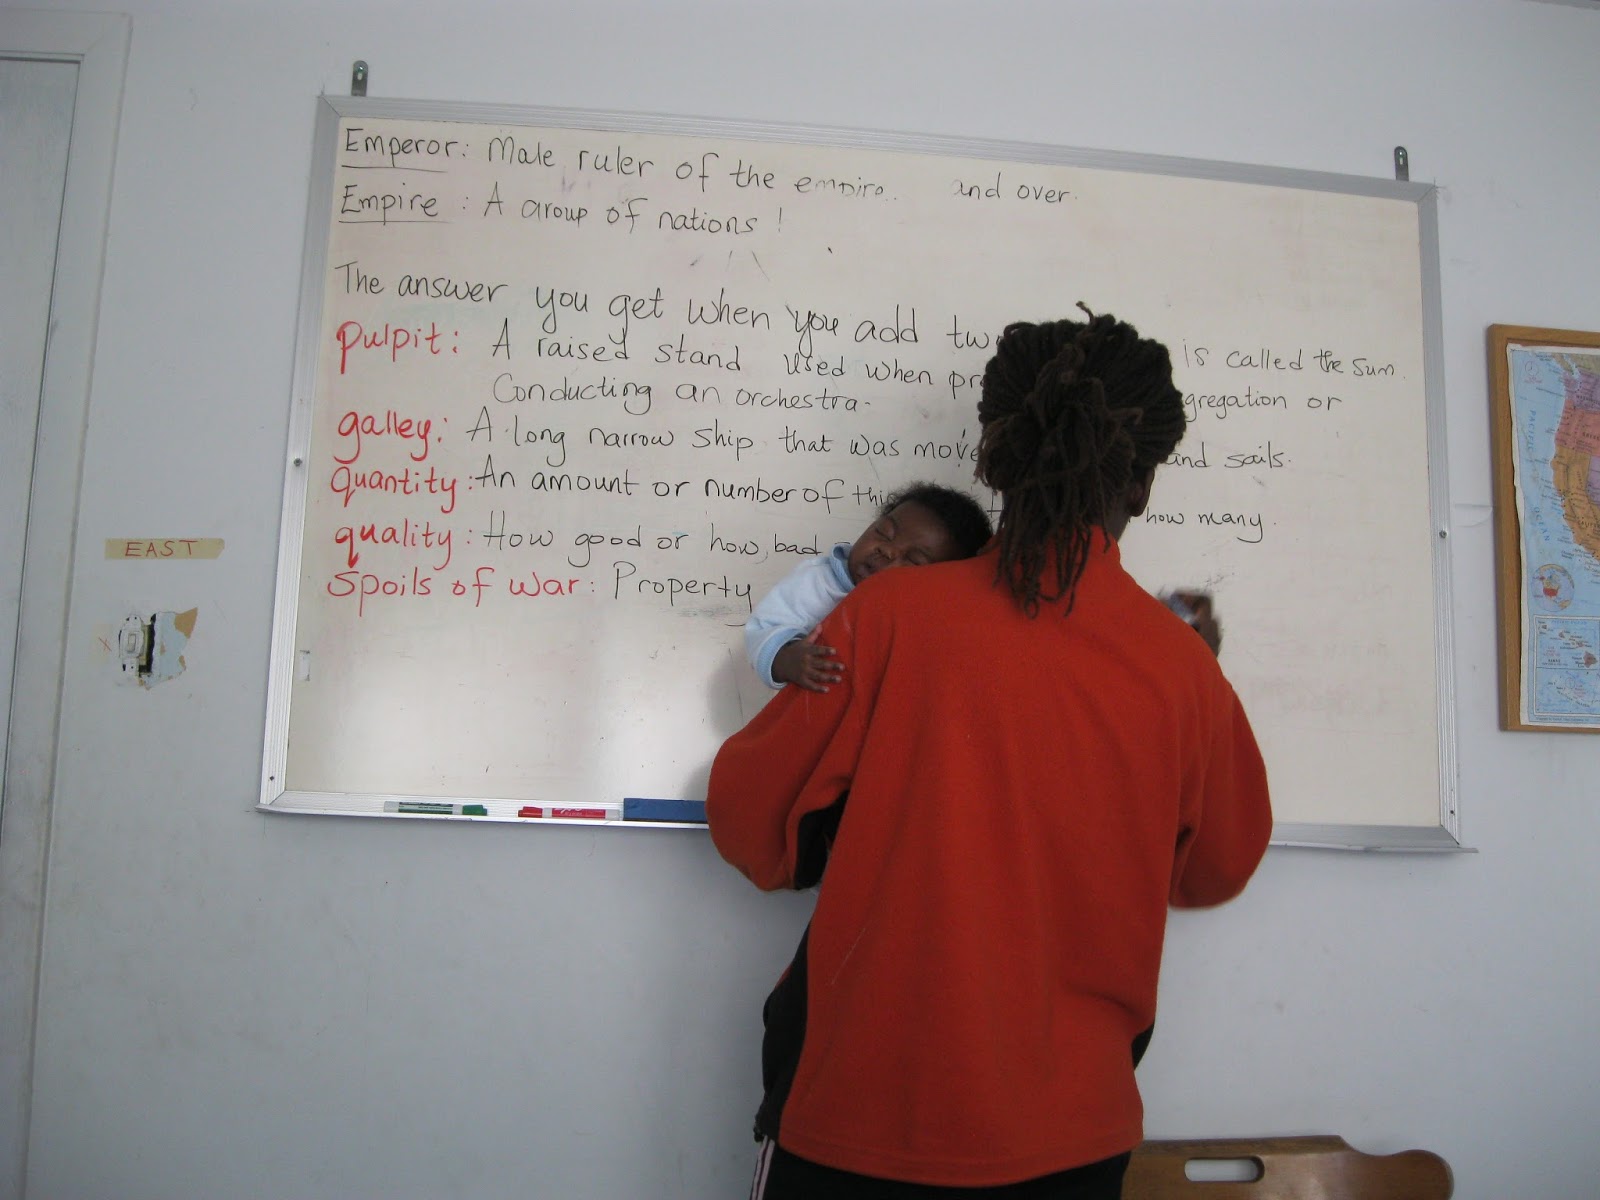 Emperor: Male ruler of the empire.. and over.
Empire : A group of nations !
The answer you get when you add is called the sum.
pulpit: A raised stand used when gregation or
Conducting an orchestra.
galley: A long narrow ship that was and sails.
quantity: An amount or number of how many.
quality: How good or how bad
spoils of war: Property
EAST
PACIFIC OCEAN